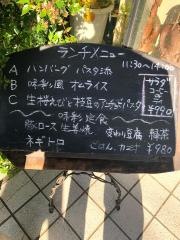 ランチメニュー
11:30〜14:00
A ハンバーグ パスタ添
B 味彩風 オムライス
C 生桜えびと枝豆のアンチョビパスタ
サラダ
コーヒー
付
¥990
味彩定食
豚ロース 生姜焼 変わり豆腐
ネギトロ ごはん
¥980